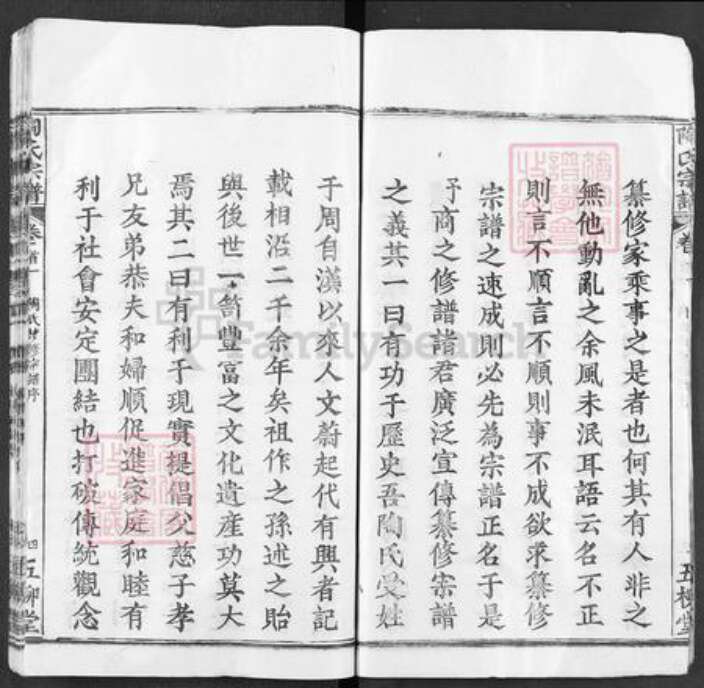 纂修家乘事之是者也何其有人非之
無他動亂之余風未泯耳語云名不正
則言不順言不順則事不成欲求纂修
宗譜之速成則必先為宗譜正名于是
予商之修譜諸君廣泛宣傳纂修宗譜
之義其一曰有功于歷史吾陶氏受姓
于周自漢以來人文蔚起代有興者記
載相沿二千余年矣祖作之孫述之貽
與後世一筒豐富之文化遺産功莫大
焉其二曰有利于現實提倡父慈子孝
兄友弟恭夫和婦順促進家庭和睦有
利于社會安定團結也打破傳統觀念
陶氏宗譜
卷
五柳堂
陶氏宗譜
卷首一
四
五柳堂
FamilySearch